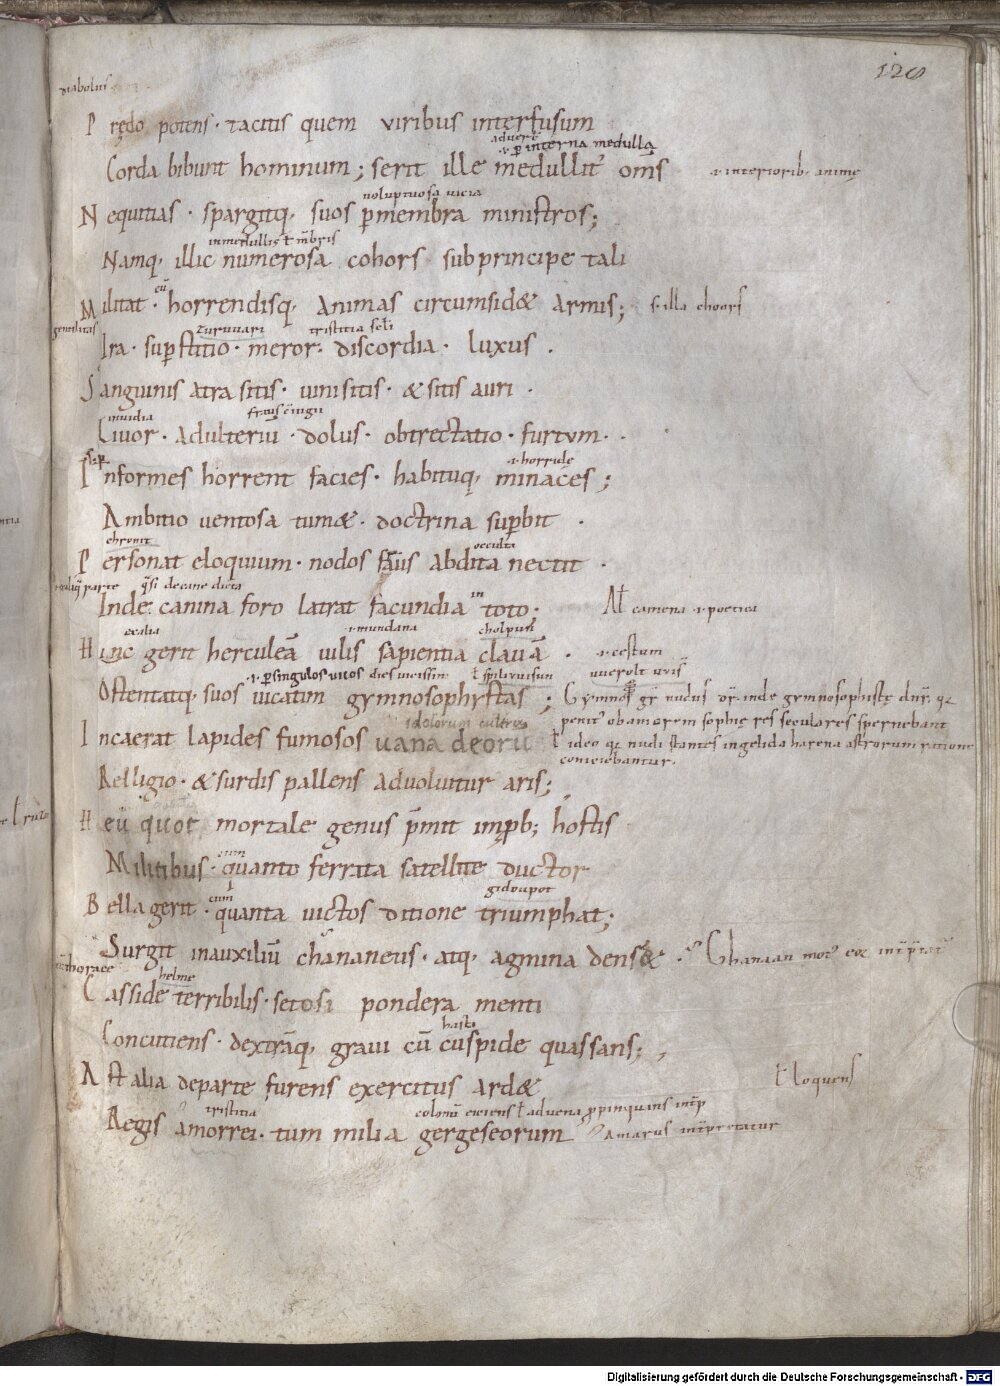 128
diabolus
Prędo potens · tacitis quem viribus interfusum
aduerƀ
·i· ꝑ interna medullę
Corda bibunt hominum ; serit ille medullit᷒ om̅s ·i· interiorib; animę
uoluptuosa uicia
Nequitias · spargitq; suos ꝑmembra ministros ;
in medullis ł mẽbris
Namq; illic numerosa cohors sub principe tali
cũ
Militat · horrendisq; animas circumsidæ armis ; s· illa choors
gentilitas zuruuari tristitia sc̃li
Ira · suꝑstitio · meror · discordia · luxus .
Sanguinis atra sitis · uini sitis · & sitis auri ·
inuidia fraus
Liuor · adulteriũ · dolus · obtrectatio · furtvm · .
·i· horridę
Informes horrent facies · habituq; minaces ;
Ambitio uentosa tumæ · doctrina suꝑbit ·
occulta
Personat eloquium · nodos fraus abdita nectit ·
parte q̃si de cane dicta
in
Inde canina foro latrat facundia toto · Ał camena ·i· poetica
·i· mundana cholpun
Hinc gerit herculeã uilis sapientia clauã . ·i· cestum
·i· ꝑ singulos uicos
Ostentatq; suos uicatim gymnosophystas ; Gymnos gr̃ nudus inde gymnosophistę
penit᷒ ob amorem sophię res seculares spernebant
idolorum cultros
Incaerat lapides fumosos uana deorũ ł ideo q; nudi stantes in gelida harena astrorum ratione
Relligio · & surdis pallens aduoluitur aris ;
Heũ quot mortale genus p̃mit imꝓb; hostis
cum
Militibus · quanto ferrata satellite ductor
cum
Bella gerit · quanta uictos ditione triumphat ;
Surgit in auxiliũ chananeus · atq; agmina densæ · Chanaan
thorace helme
Casside terribilis · setosi pondera menti
hasta
Concutiens · dextrãq; graui cũ cuspide quassans ;
Ast alia de parte furens exercitus ardæ ł loquens
tristitia colonũ eiciens ł aduena ꝓpinquans
Regis amorrei · tum milia gergeseorum Amarus int̃pretatur
Digitalisierung gefördert durch die Deutsche Forschungsgemeinschaft - DFG